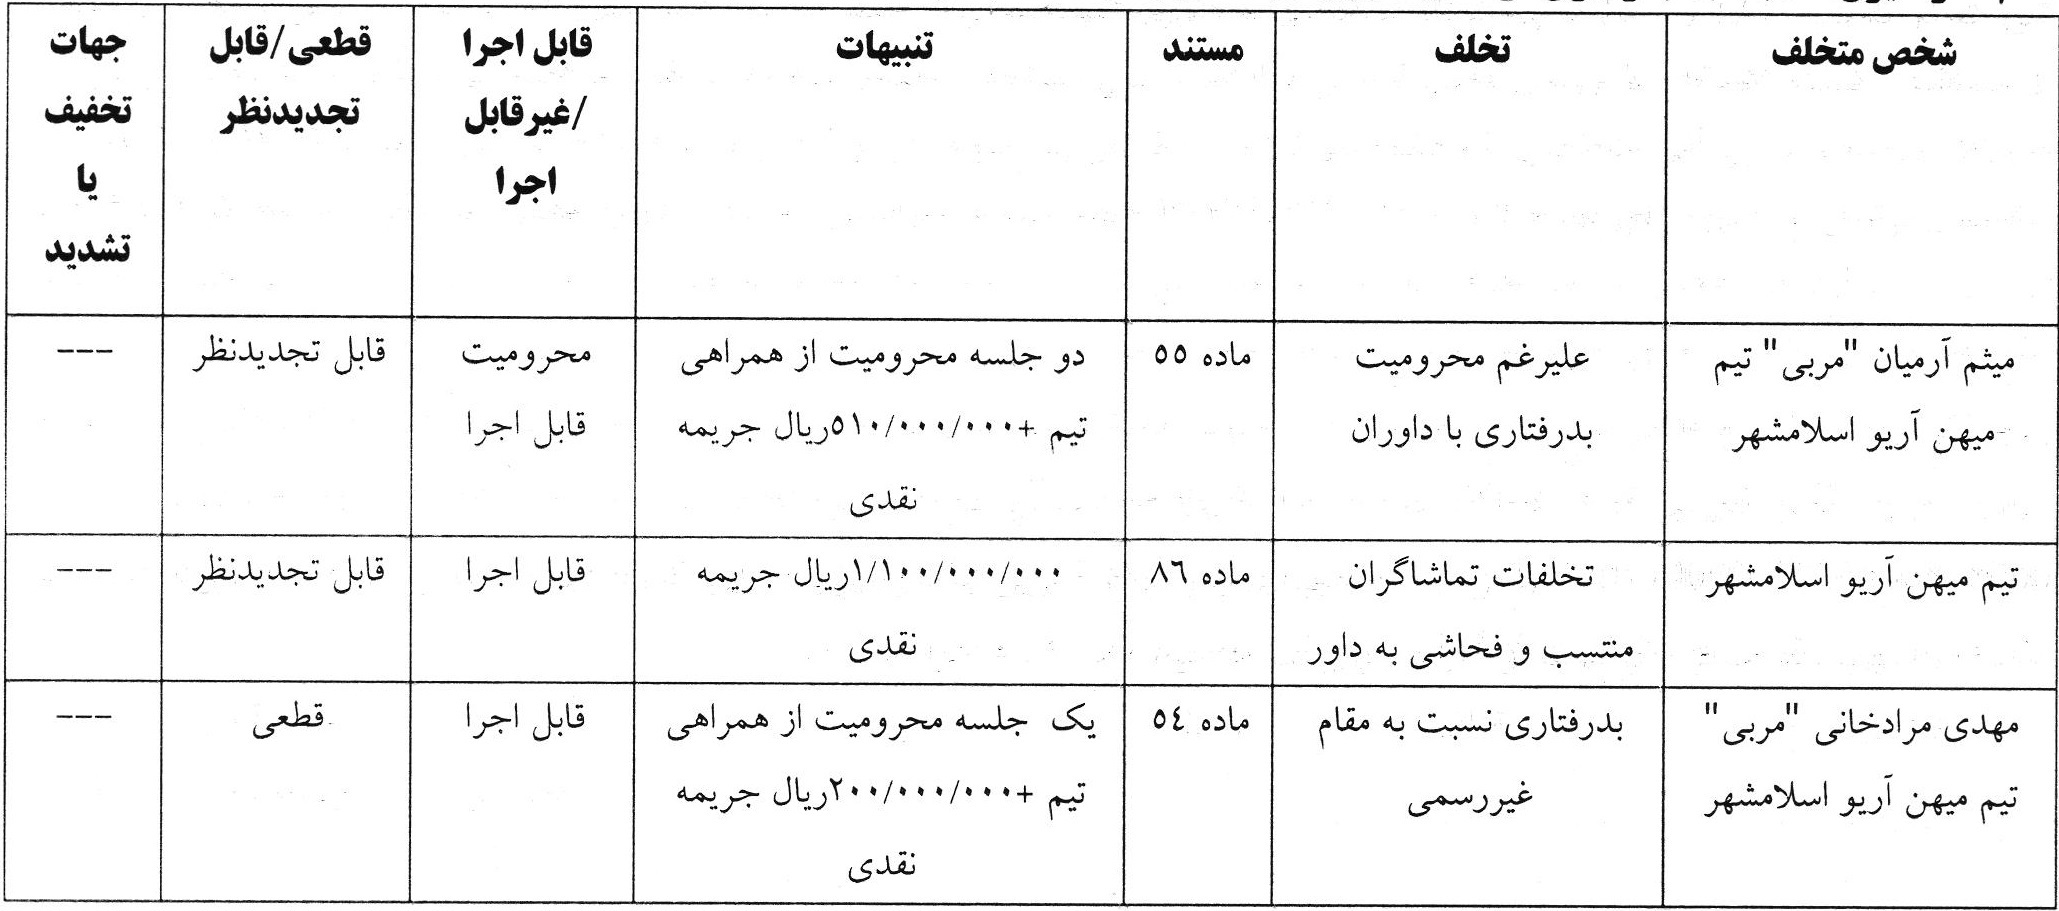 شخص متخلف
تخلف
مستند
تنبیهات
قابل اجرا
/غیرقابل
اجرا
قطعی/قابل
تجدیدنظر
جهات
تخفیف
یا
تشدید
میثم آرمیان "مربی" تیم
میهن آریو اسلامشهر
علیرغم محرومیت
بدرفتاری با داوران
ماده ۵۵
دو جلسه محرومیت از همراهی
تیم +۵۱۰/۰۰۰/۰۰۰ریال جریمه
نقدی
محرومیت
قابل اجرا
قابل تجدیدنظر
---
تیم میهن آریو اسلامشهر
تخلفات تماشاگران
منتسب و فحاشی به داور
ماده ۸۶
۱/۱۰۰/۰۰۰/۰۰۰ریال جریمه
نقدی
قابل اجرا
قابل تجدیدنظر
---
مهدی مرادخانی "مربی"
تیم میهن آریو اسلامشهر
بدرفتاری نسبت به مقام
غیررسمی
ماده ۵۴
یک جلسه محرومیت از همراهی
تیم +۲۰۰/۰۰۰/۰۰۰ریال جریمه
نقدی
قابل اجرا
قطعی
---